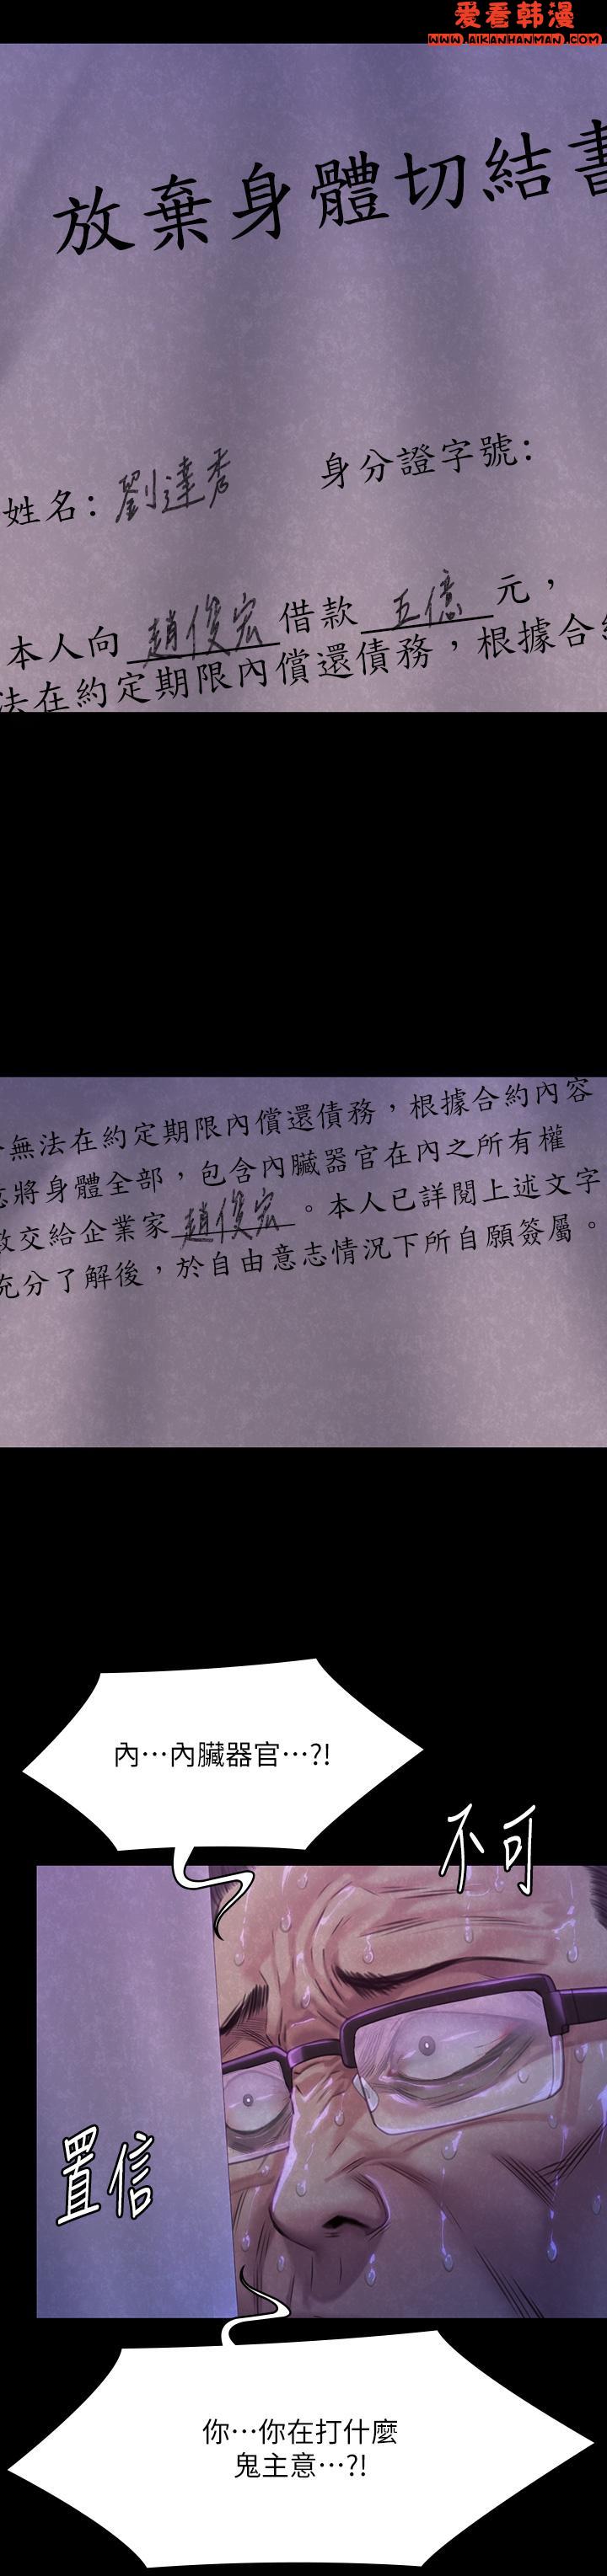 爱看韩漫
WWW.AIKANHANMAN.COM
放棄身體切結書
姓名：劉達秀 身分證字號：
本人向趙俊宏借款五億元，
法在約定期限內償還債務，根據合約
無法在約定期限內償還債務，根據合約內容
將身體全部，包含內臟器官在內之所有權
交給企業家趙俊宏。本人已詳閱上述文字
充分了解後，於自由意志情況下所自願簽屬。
內⋯內臟器官⋯?!
不可
置信
你⋯你在打什麼
鬼主意⋯?!